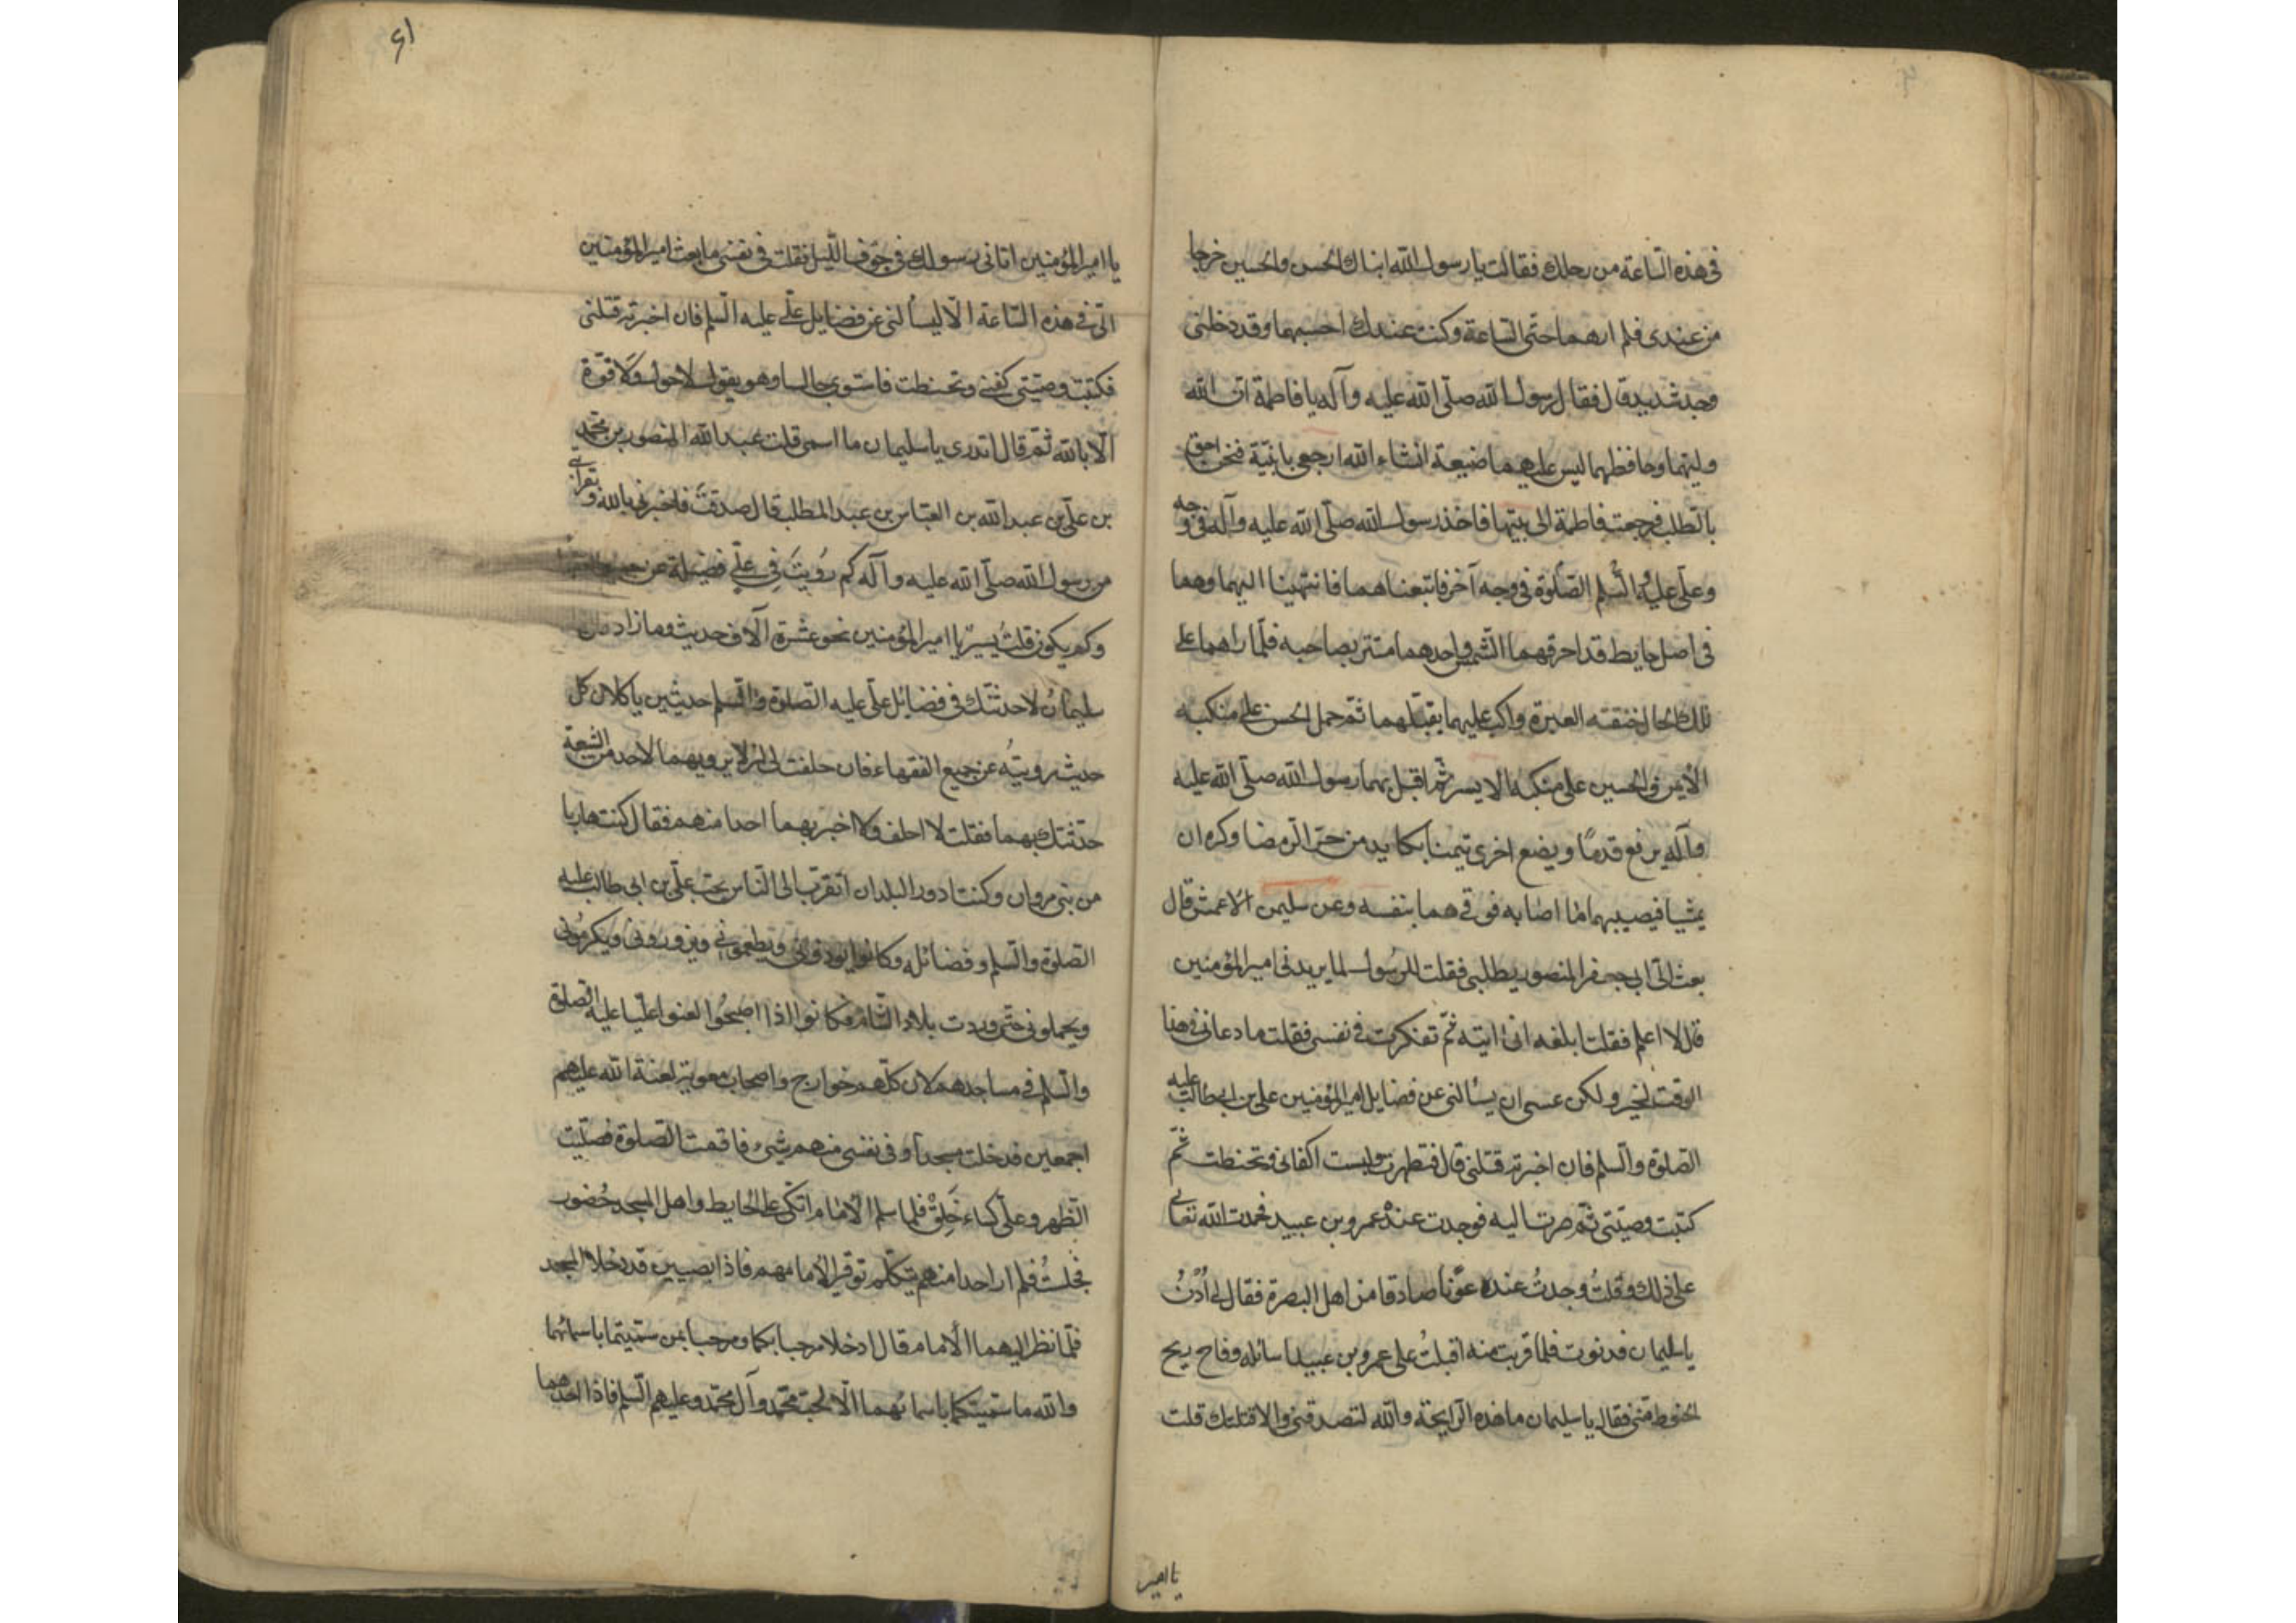 فى هذه الساعة من رحلك فقالت يا رسول الله ابناك الحسن والحسين خرجا
من عندى فلم ارهما حتى الساعة وكنت عندك احسبهما وقد دخلنى
وجد شديد قال فقال رسول الله صلّى الله عليه وآله يا فاطمة ان الله
وليهما وحافظهما ليس عليهما ضيعة انشاء الله ارجعى يا بنية فنحن احق
بالطلب فرجعت فاطمة الى بيتها فاخذ رسول الله صلّى الله عليه وآله فى وجه
وعلى عليه السلم الصلوة فى وجه آخر فاتبعناهما فانتهينا اليهما وهما
فى اصل حايط قد احرقهما الشمس واحدهما متتر بصاحبه فلما راهما على
تلك الحال خنقته العبرة واكب عليهما يقبلهما ثم حمل الحسن على منكبه
الأيمن والحسين على منكبه الايسر ثم اقبل بهما رسول الله صلّى الله عليه
وآله يرفع قدمًا ويضع اخرى يكابد من حر الرمضا وكره ان
يمشيا فيصيبهما ما اصابه فوقهما بنفسه وعن سليمن الاعمش قال
بعث الىّ ابى جعفر المنصور يطلبنى فقلت للرسول لما يريدنى امير المؤمنين
قال لا اعلم فقلت ابلغه انى آتيه ثم تفكرت فى نفسى فقلت ما دعانى فى هذا
الوقت لخير ولكن عسى ان يسألنى عن فضايل امير المؤمنين على بن ابى طالب عليه
الصلوة والسلم فان اخبرته قتلنى قال فتطهرت ولبست اكفانى وتحنطت ثم
كتبت وصيتى ثم صرت اليه فوجدت عنده عمرو بن عبيد فحمدت الله تعالى
على ذلك وقلت وجدت عنده عونا صادقا من اهل البصرة فقال لى اُدْنُ
يا سليمان فدنوت فلما قربت منه اقبلت على عمرو بن عبيد اسائله وفاح ريح
الحنوط منى فقال يا سليمان ما هذه الرايحة والله لتصدقنى والا قتلتك قلت
يا امير
٦١
يا امير المؤمنين اتانى رسولك فى جوف الليل فقلت فى نفسى ما بعث امير المؤمنين
الىّ فى هذه الساعة الا ليسألنى عن فضايل على عليه السلم فان اخبرته قتلنى
فكتبت وصيتى كفنى وتحنطت فاستوى جالسا وهو يقول لا حول ولا قوّة
الا بالله ثم قال اتدرى يا سليمان ما اسمى قلت عبد الله المنصور بن محمد
بن على بن عبد الله بن العباس بن عبد المطلب قال صدقت فاخبرنى بالله وبقرابتى
من رسول الله صلّى الله عليه وآله كم رُويت فى علىّ فضيلة عن جميع الفقهاء
وكم يكون قلت يسير يا امير المؤمنين نحو عشرة آلاف حديث وما زاد قال
يا سليمان لاحدثنك فى فضائل على عليه الصلوة والسلم حديثين ياكلان كل
حديث رويته عن جميع الفقهاء فان حلفت لى ان لا ترويهما لاحد من الشيعة
حدثتك بهما فقلت لا احلف ولا اخبر بهما احدا منهم فقال كنت هاربا
من بنى مروان وكنت ادور البلدان اتقرب الى الناس بحب على بن ابى طالب عليه
الصلوة والسلم وفضائله وكانوا يؤوننى ويطعمونى ويزورونى ويكرمونى
ويحملونى حتى وردت بلاد الشام وكانوا اذا اصبحوا لعنوا عليا عليه الصلوة
والسلم فى مساجدهم لان كلهم خوارج واصحاب معوية لعنة الله عليهم
اجمعين فدخلت مسجدا وفى نفسى منهم شىء فاقمت الصلوة فصليت
الظهر وعلىّ كساء خَلِقٌ فلما سلم الامام اتكى على الحايط واهل المسجد حضور
فجلست فلم ار احدا منهم يتكلم توقيرا لامامهم فاذا بصبيين قد دخلا المسجد
فلما نظر اليهما الامام قال ادخلا مرحبا بكما ومرحبا بمن سميتما باسمائهما
والله ما سميتكما باسمائهما الا لحب محمد وآل محمد وعليهم السلم فاذا احدهما